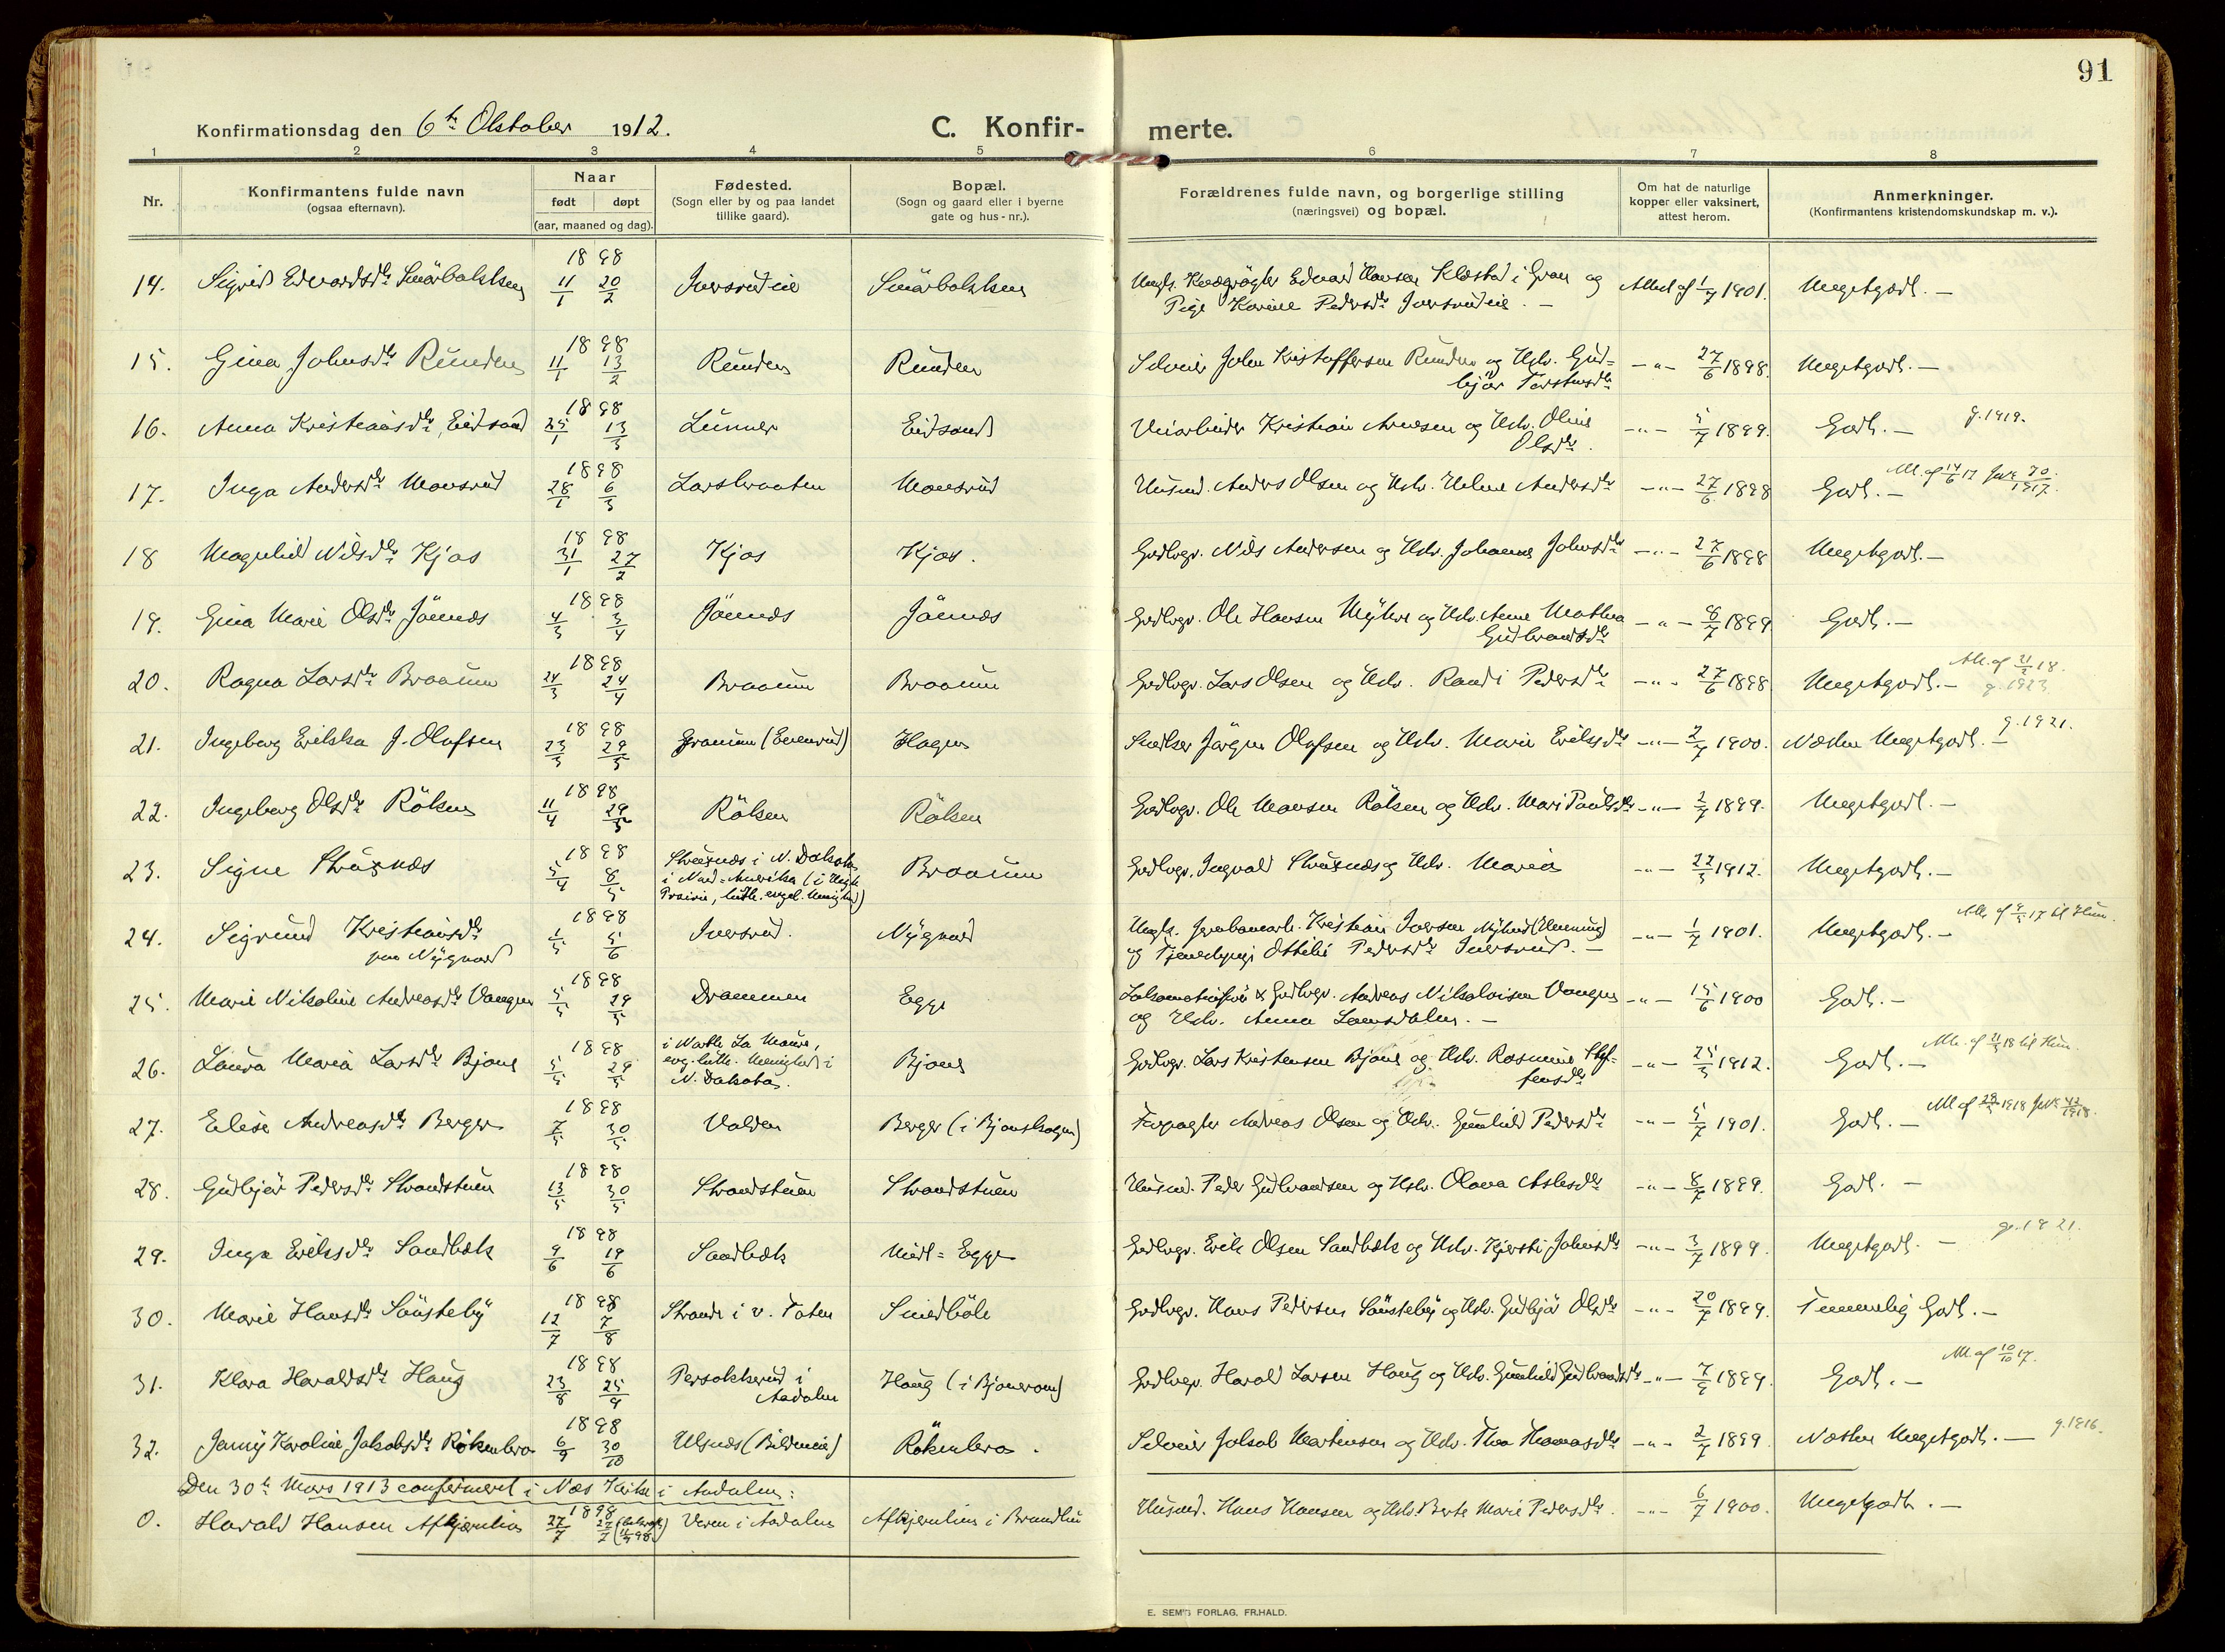 91
Konfirmationsdag den 6te Oktober 1912. C. Konfir- merte.
1 2 3 4 5 6 7 8
Nr. Konfirmantens fulde navn (ogsaa efternavn). Naar født døpt (aar, maaned og dag). Fødested. (Sogn eller by og paa landet tillike gaard). Bopæl. (Sogn og gaard eller i byerne gate og hus-nr.). Forældrenes fulde navn, og borgerlige stilling (næringsvei) og bopæl. Om hat de naturlige kopper eller vaksinert, attest herom. Anmerkninger. (Konfirmantens kristendomskundskap m. v.).
14. Sigrid Edvardsdtr 1898 11/1 20/2 Iversrudeie Edvard Hansen Klæstad i Gran og Pige Karine Pedersdtr Iversrudeie. — Attest af 1/7 1901. Megetgodt. —
15. Gina Johnsdtr Runden 1898 11/1 13/2 Runden Runden Selveier John Kristoffersen Runden og Hstr. Gudbjør Torstensdtr —"— 27/6 1898. Megetgodt. —
16. Anna Kristiansdtr Eidsand 1898 25/1 13/3 Lunner Eidsand Veiarbeider Kristian Arnesen og Hstr. Oline Olsdtr. —"— 5/7 1899. Godt. — g. 1919.
17. Inga Andersdtr Monsrud 1898 28/1 6/3 Larsbraaten Monsrud Husmd. Anders Olsen og Hstr. Helene Andersdtr —"— 27/6 1898 Godt. —
18 Magnhild Nilsdtr Kjos 1898 31/1 27/2 Kjos Kjos. Grdbrgr. Nils Andersen og Hstr. Johanne Johnsdtr —"— 27/6 1898 Megetgodt. —
19. Gina Marie Olsdtr Jönnes 1898 4/3 3/4 Jönnes Jönnes Grdbrgr. Ole Hansen Myhre og Hstr. Anne Mathea Gudbrandsdtr —"— 8/7 1899 Godt. —
20. Ragna Larsdtr Braaum 1898 24/3 24/4 Braaum Braaum Grdbrgr. Lars Olsen og Hstr. Randi Pedersdtr —"— 27/6 1898 Megetgodt. — g. 1923
21. Ingeborg Erikka J. Olafsen 1898 23/3 29/5 Hagen Snedker Jørgen Olafsen og Hstr. Marie Eriksdtr —"— 2/7 1900. Næsten Megetgodt. — g. 1921.
22. Ingeborg Olsdtr Rölsen 1898 11/4 29/5 Rölsen Rölsen Grdbrgr. Ole Monsen Rölsen og Hstr. Mari Paulsdtr —"— 2/7 1899. Megetgodt. —
23. Signe Strøsnæs 1898 5/4 8/5 i N. Dakota i Nord-Amerika Braaum Grdbrgr. Ingvald og Hstr. Maria —"— 22/5 1912. Megetgodt. —
24. Sigrund Kristiansdtr paa Nÿgaard 1898 1/5 5/6 Iversrud. Nÿgaard Kristian Iversen og Ottilie Pedersdtr Iversrud. — —"— 1/7 1901. Megetgodt. —
25. Marie Nikoline Andreasdtr Vangen 1898 5/5 29/5 Drammen Egge Grdbrgr. Andreas Nikolaisen Vangen og Hstr. Anna —"— 15/6 1900 Godt. —
26. Laura Maria Larsdtr Bjone 1898 5/5 29/5 i North La Moure, evg. luth. Menighed i N. Dakota. Bjone Grdbrgr. Lars Kristensen Bjone og Hstr. Rosmine Steffensdtr —"— 25/5 1912. Godt. —
27. Elise Andreasdtr Berger 1898 7/5 30/5 Valden Berger (i Bjoneskogen) Forpagter Andreas Olsen og Hstr. Gunhild Pedersdtr —"— 5/7 1901. Godt. —
28. Gudbjør Pedersdtr Strandstuen 1898 13/5 30/5 Strandstuen Strandstuen Husmd. Peder Gudbrandsen og Hstr. Olava Aslesdtr —"— 8/7 1899. Godt. —
29. Inga Eriksdtr Sandbæk 1898 9/6 19/6 Sandbæk Midt-Egge Grdbrgr. Erik Olsen Sandbæk og Hstr. Kjersti Johnsdtr —"— 3/7 1899. Megetgodt. — g. 1921.
30. Marie Hansdtr Sönstebÿ 1898 12/7 7/8 Strande i v. Toten Smedböle Grdbrgr. Hans Pedersen Sönstebÿ og Hstr. Gudbjør Olsdtr —"— 20/7 1899. Temmelig Godt. —
31. Klara Haraldsdtr Haug 1898 23/8 25/9 Persokkerud i Aadalen Haug (i Bjoneroa) Grdbrgr. Harald Larsen Haug og Hstr. Gunhild Gudbrandsdtr —"— 7/9 1899. Godt. — Att. af 10/10 17.
32. Jennÿ Karoline Jakobsdtr Rökenbro 1898 6/9 30/10 Ulsnes Rökenbro. Selveier Jakob Martinsen og Hstr. Thea Thomasdtr —"— 2/7 1899. Næsten Megetgodt. — g. 1916.
Den 30te Mars 1913 confirmeret i Næs Kirke i Aadalen:
0. Harald Hansen 1898 27/7 Veren i Aadalen i Brandbu Husmd. Hans Hansen og Hstr. Berte Marie Pedersdtr. —"— 6/7 1900. Megetgodt. —
E. SEM'S FORLAG, FR.HALD.